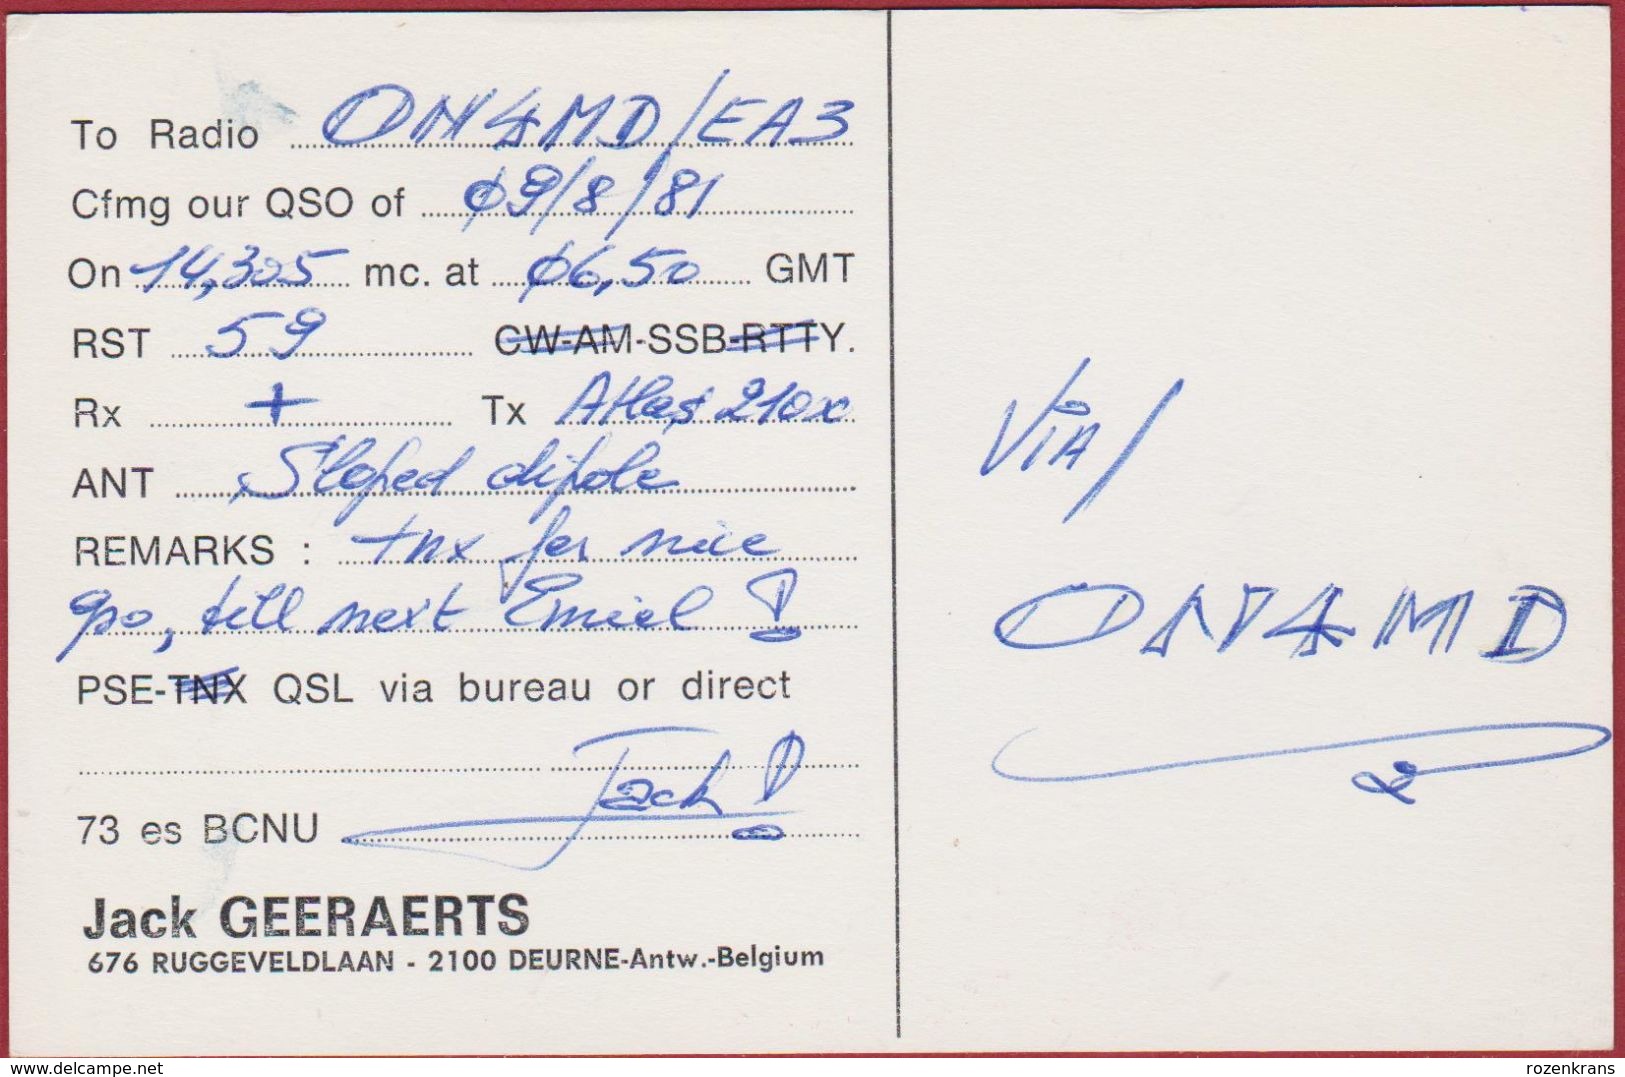 To Radio ON4MD/EA3
Cfmg our QSO of 09/8/81
On 14,305 mc. at 06,50 GMT
RST 59 CW-AM-SSB-RTTY.
Rx + Tx Atlas 210x
ANT Sloped dipole
REMARKS : tnx for nice
qso, till next Emiel !
PSE-TNX QSL via bureau or direct
Jack!
73 es BCNU
Jack GEERAERTS
676 RUGGEVELDLAAN - 2100 DEURNE-Antw.-Belgium
VIA/
ON4MD
www.delcampe.net
rozenkrans